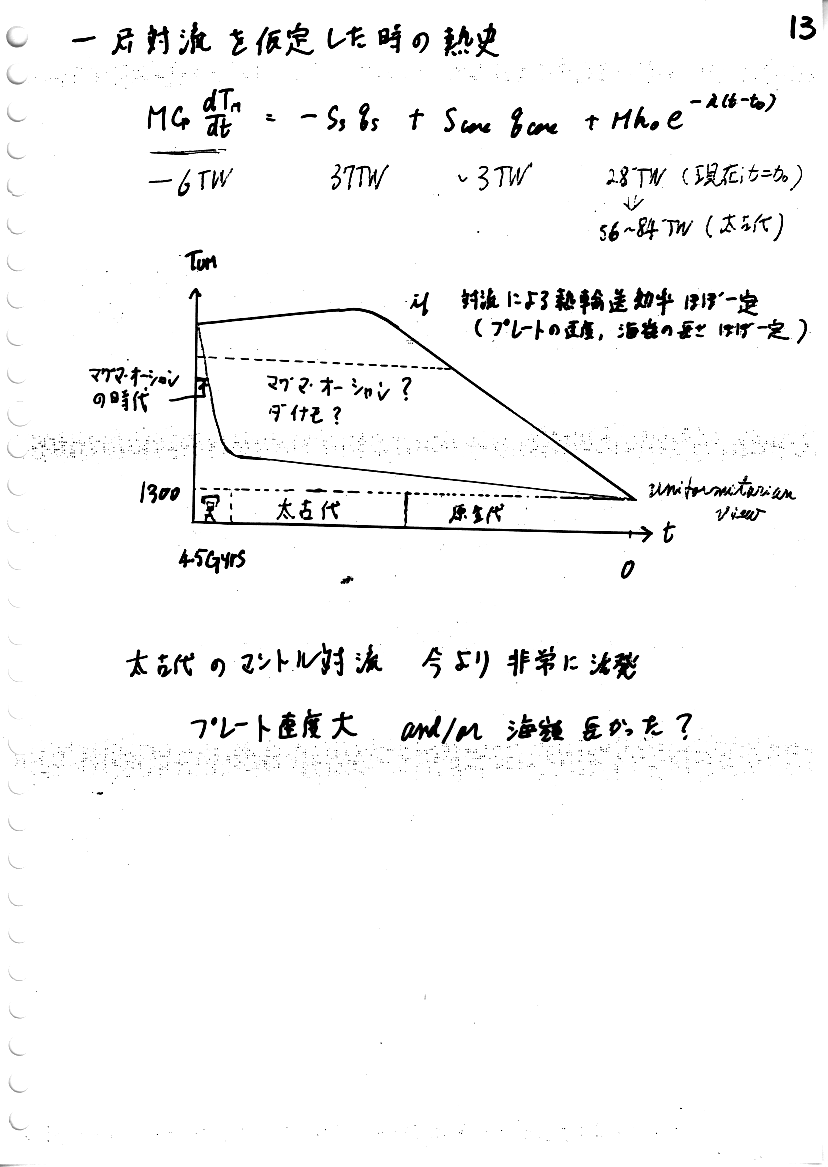 13
一層対流を仮定した時の熱史
MCp dTM/dt = - Ss qs + Score qcore + Mho e^-λ(t-to)
-6TW 37TW ~3TW 28TW (現在 t=to)
↓
56~84TW (太古代)
TUM
if 対流による熱輸送効率ほぼ一定
(プレートの速度, 海嶺の長さ ほぼ一定)
マグマ・オーション
の時代
マグマ・オーション?
ダイナモ?
1300
冥 太古代 原生代
Uniformitarian
view
t
4.5Gyrs
0
太古代のマントル対流 今より非常に活発
プレート速度大 and/or 海嶺長かった?